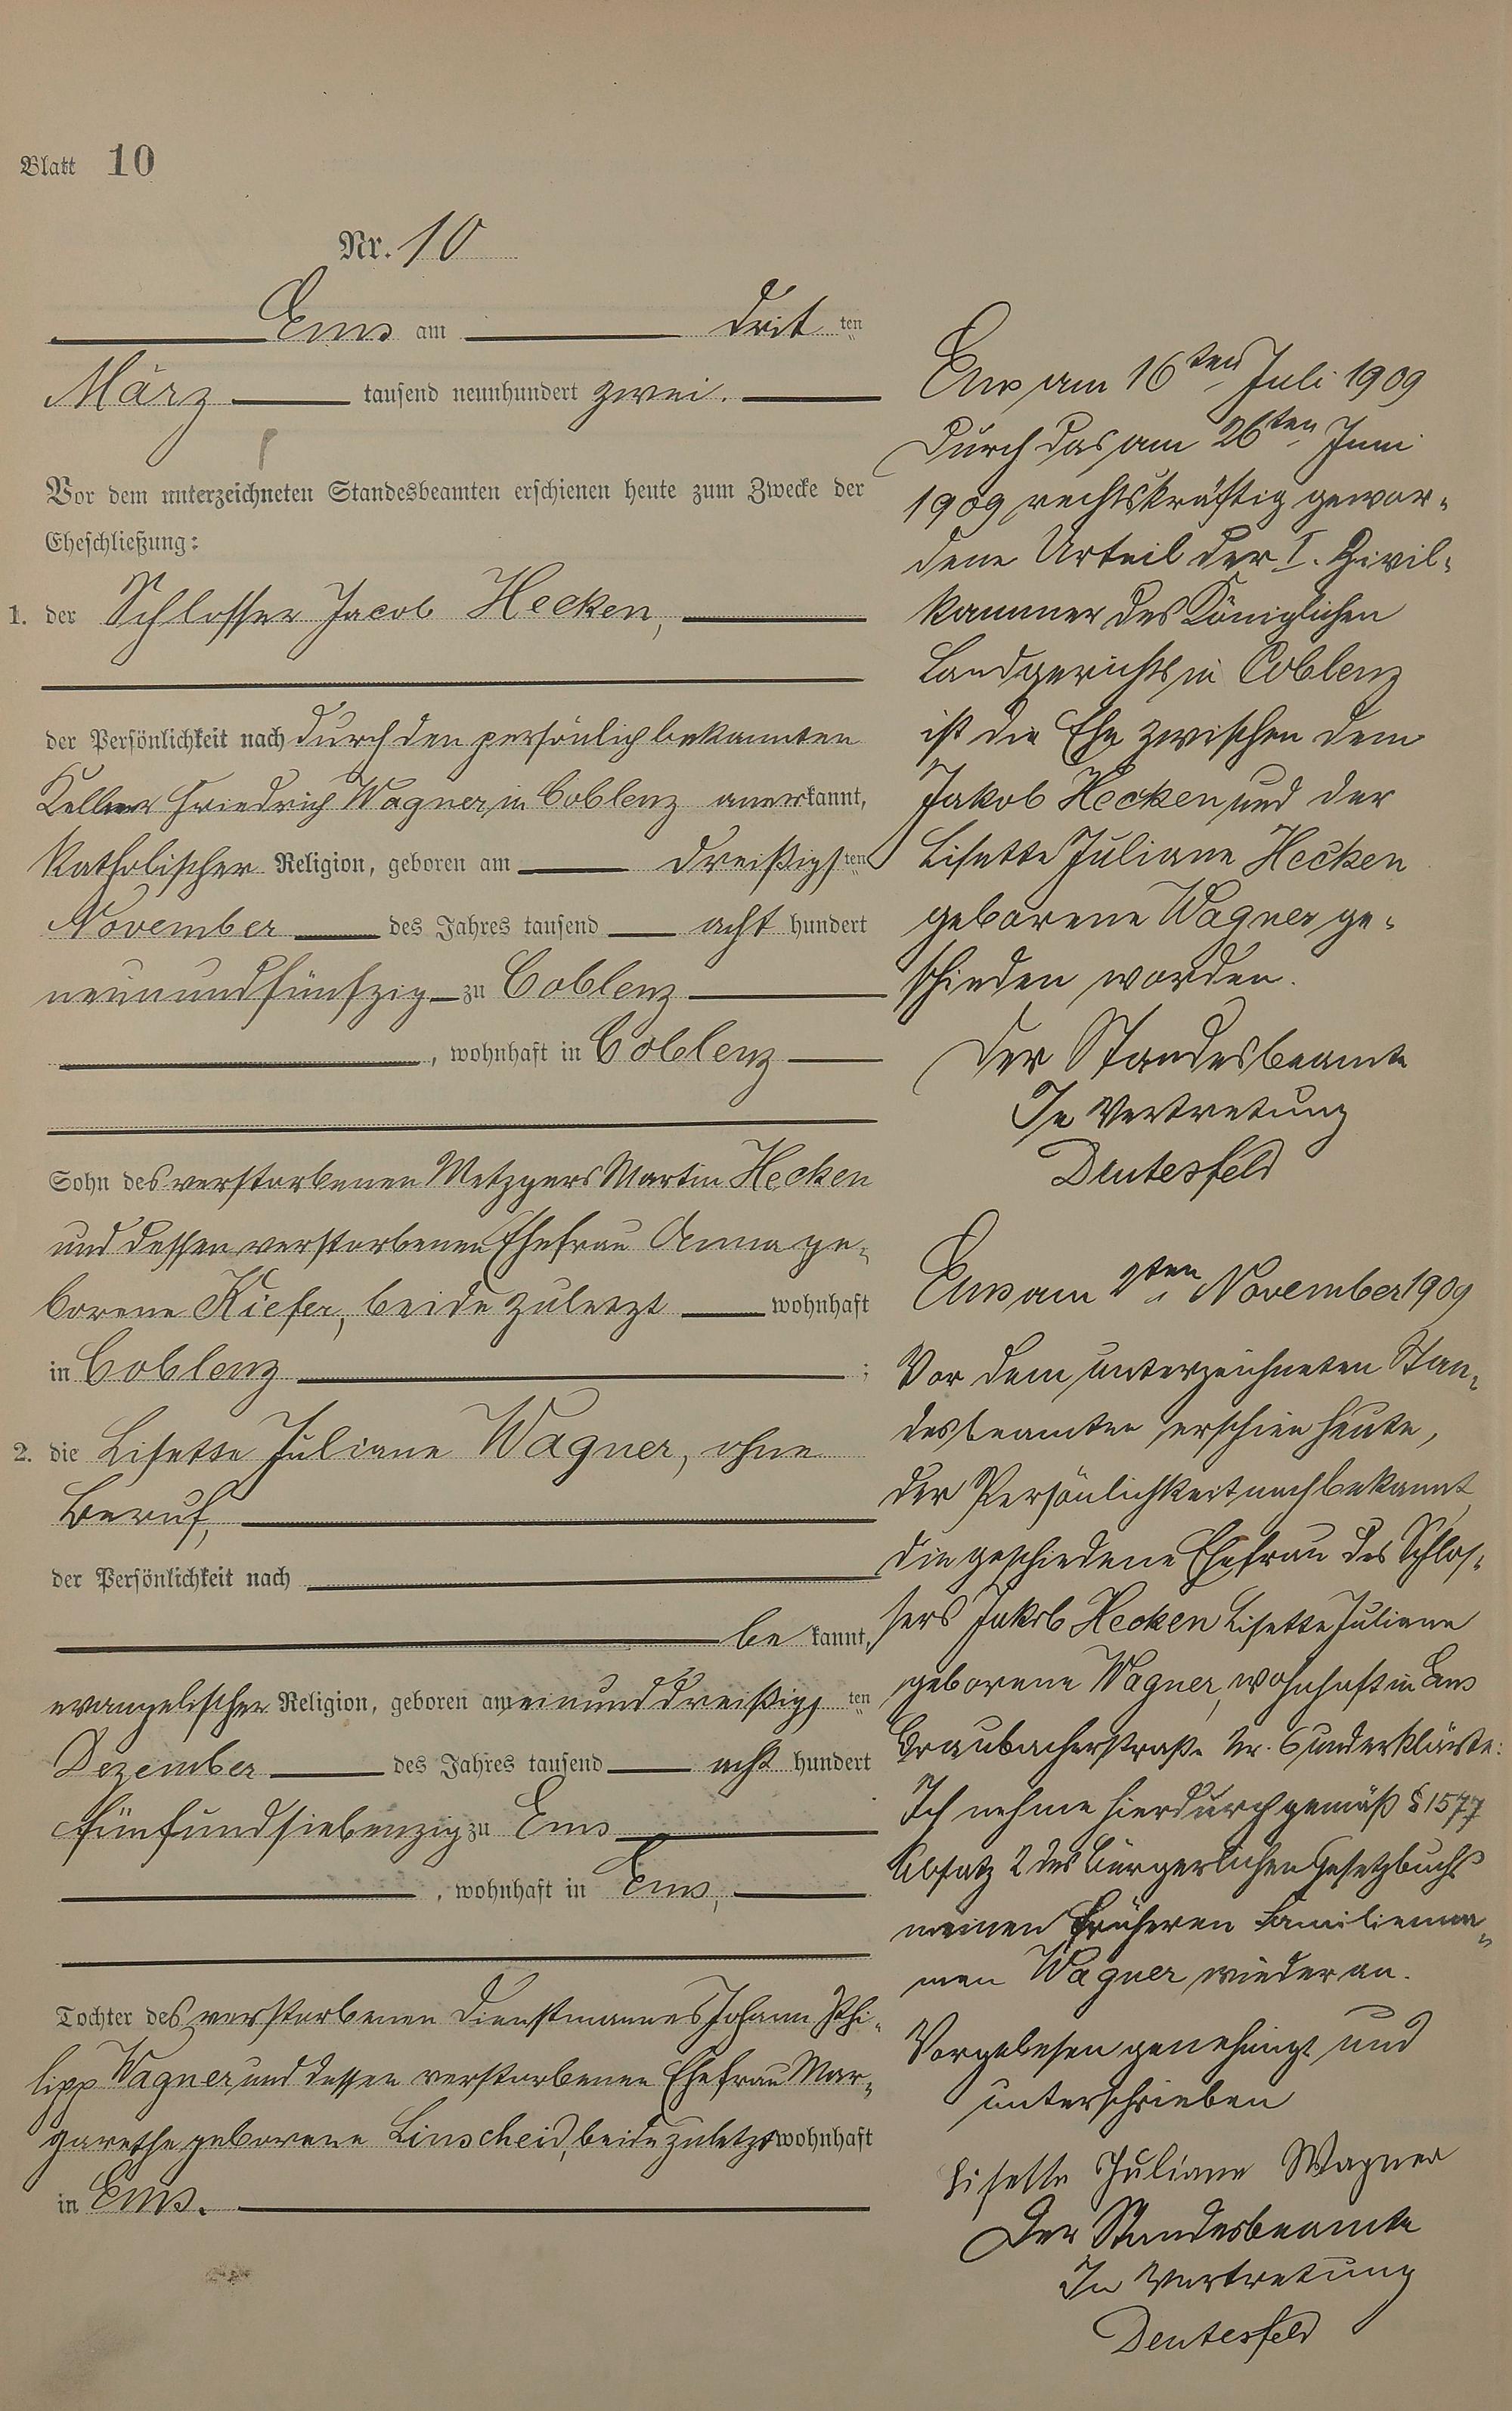 Blatt 10
Nr. 10
Ems am dritten
März tausend neunhundert zwei.
Vor dem unterzeichneten Standesbeamten erschienen heute zum Zwecke der
Eheschließung:
1. der Schlosser Jacob Hecken,
der Persönlichkeit nach durch den persönlich bekannten
Kellner Friedrich Wagner in Coblenz anerkannt,
katholischer Religion, geboren am dreißigsten
November des Jahres tausend acht hundert
neunundfünfzig zu Coblenz
, wohnhaft in Coblenz
Sohn des verstorbenen Metzgers Martin Hecken
und dessen verstorbenen Ehefrau Anna ge-
borene Kiefer, beide zuletzt wohnhaft
in Coblenz ;
2. die Lisette Juliane Wagner, ohne
Beruf,
der Persönlichkeit nach
be kannt,
evangelischer Religion, geboren am einunddreißigsten
Dezember des Jahres tausend acht hundert
fünfundsiebenzig zu Ems
, wohnhaft in Ems,
Tochter des verstorbenen Dienstmannes Johann Phi-
lipp Wagner und dessen verstorbenen Ehefrau Mar-
garethe geborene Linscheid, beide zuletzt wohnhaft
in Ems.
Ems am 16ten Juli 1909
Durch das am 26ten Juni
1909 rechtskräftig gewor-
dene Urteil der I. Zivil-
kammer des Königlichen
Landgerichts in Coblenz
ist die Ehe zwischen dem
Jakob Hecken und der
Lisette Juliane Hecken
geborene Wagner ge-
schieden worden.
Der Standesbeamte
In Vertretung
Deutesfeld
Ems am 2ten November 1909
Vor dem unterzeichneten Stan-
desbeamten erschien heute,
der Persönlichkeit nach bekannt,
die geschiedene Ehefrau des Schlos-
sers Jakob Hecken Lisette Juliane
geborene Wagner, wohnhaft in Ems
Braubacherstraße Nr. 6 und erklärte:
Ich nehme hierdurch gemäß § 1577
Absatz 2 des Bürgerlichen Gesetzbuchs
meinen früheren Familienna-
men Wagner wieder an.
Vorgelesen genehmigt und
unterschrieben
Lisette Juliane Wagner
Der Standesbeamte
In Vertretung
Deutesfeld